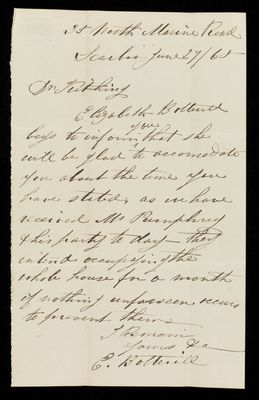 35 North Marine Road
Scarbro' June 27/65
Elizabeth Botterill
begs to inform you that she
will be glad to accomodate
you about the time you
have stated, as we have
received Mr Pumphrey
& his party to day – they
intend occupying the
whole house for a month
if nothing unforseen occurs
to prevent them
I Remain
Yours &c
E. Botterill